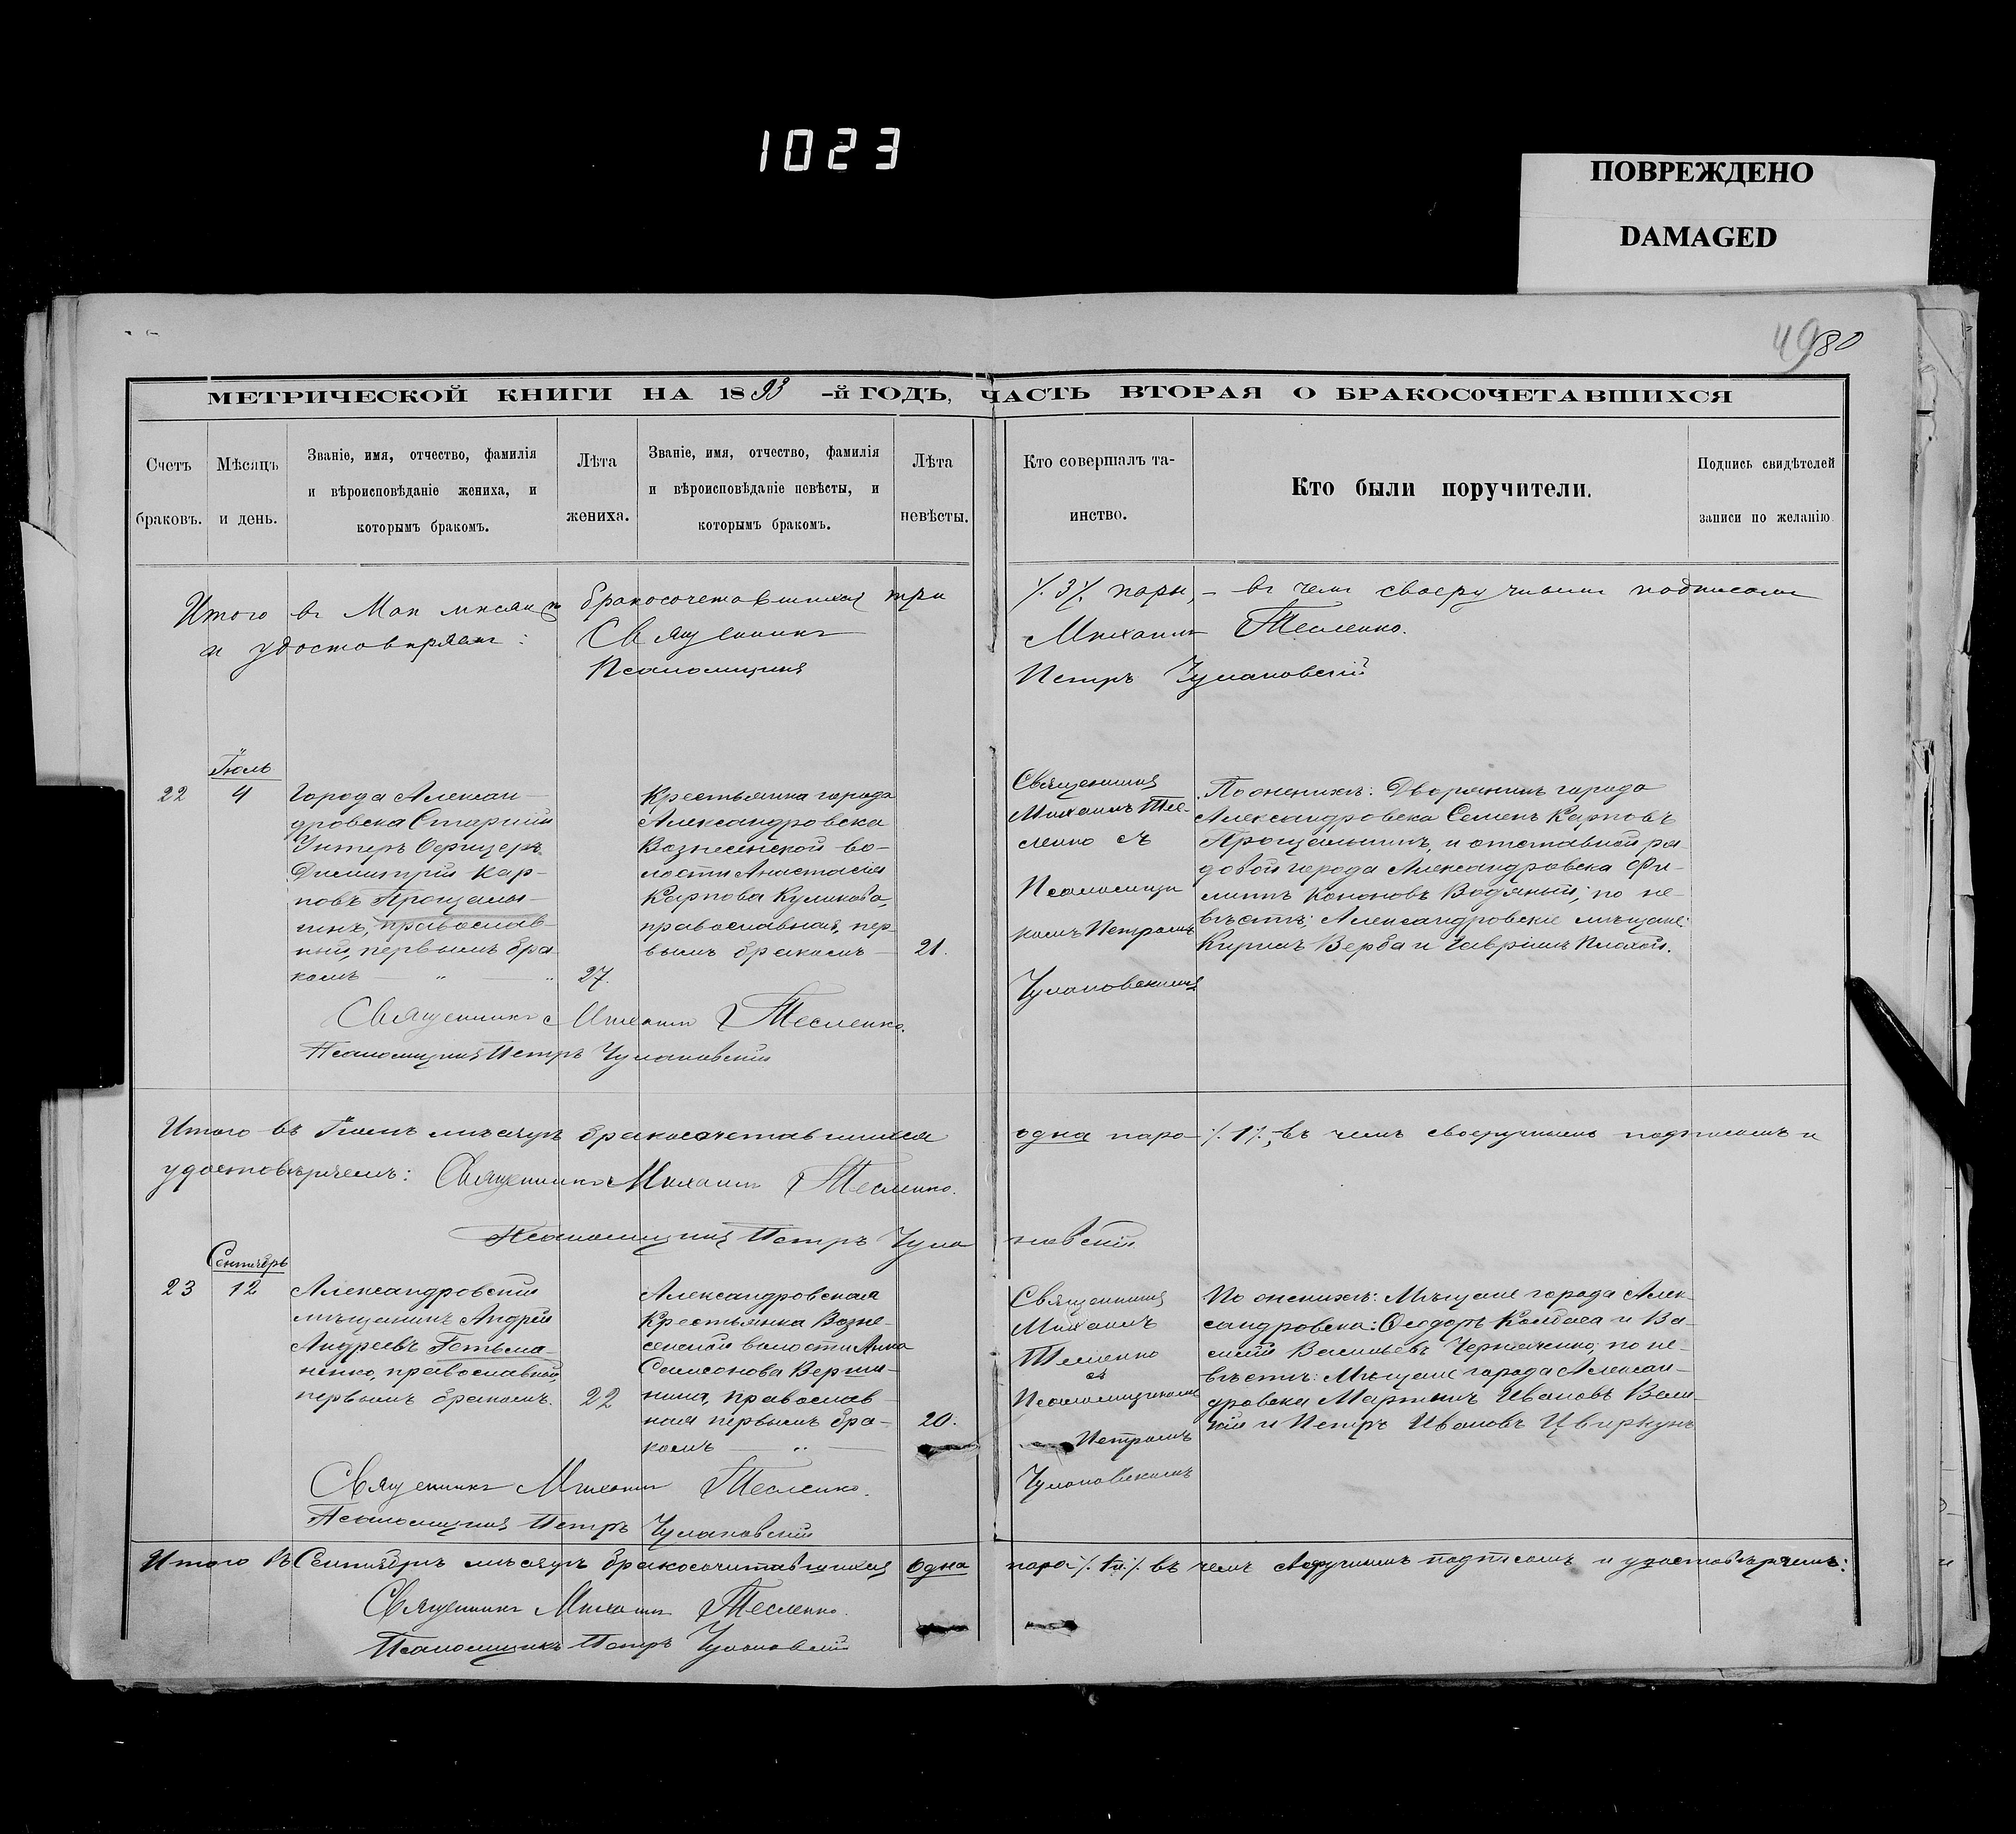 1023
ПОВРЕЖДЕНО
DAMAGED
49 80
МЕТРИЧЕСКОЙ КНИГИ НА 1893-й ГОДЪ, ЧАСТЬ ВТОРАЯ О БРАКОСОЧЕТАВШИХСЯ
Счетъ браковъ.
Мѣсяцъ и день.
Званіе, имя, отчество, фамилія
и вѣроисповѣданіе жениха, и
которымъ бракомъ.
Лѣта
жениха.
Званіе, имя, отчество, фамилія
и вѣроисповѣданіе невѣсты, и
которымъ бракомъ.
Лѣта
невѣсты.
Кто совершалъ та-
инство.
Кто были поручители.
Подпись свидѣтелей
записи по желанію
Итого въ Маѣ мѣсяцѣ бракосочетавшихся три ·/. 3 ·/. пары, – въ чемъ своеручнымъ подписомъ
и удостовѣряемъ: Священникъ Михаилъ Тесленко.
Псаломщикъ Петръ Чулановскій
Іюль
22
4
Города Алексан-
дровска Старшій
Унтеръ Офицеръ
Димитрій Кар-
повъ Прощалы-
гинъ, православ-
ный, первымъ бра-
комъ
27.
Крестьянка города
Александровска
Вознесенской во-
лости Анастасія
Карпова Куликова,
православная, пер-
вымъ бракомъ
21.
Священникъ
Михаилъ Тес-
ленко съ
Псаломщи
комъ Петромъ
Чулановскимъ
По женихѣ: Дворянинъ города
Александровска Семенъ Карповъ
и отставной ря
довой города Александровска Фи-
липъ Кононовъ Водяный; по не-
вѣстѣ: Александровскіе мѣщане:
Кирилъ Верба и Гавріилъ Плохой.
Священникъ Михаилъ Тесленко.
Псаломщикъ Петръ Чулановскій
Итого въ Іюлѣ мѣсяцѣ бракосочетавшихся одна пара ·/. 1 ·/., въ чемъ своеручнымъ подписомъ и
удостовѣряемъ: Священникъ Михаилъ Тесленко.
Псаломщикъ Петръ Чулановскій
Сентябрь
23
12
Александровскій
мѣщанинъ Андрей
Андреевъ Гетьма-
ненко, православный,
первымъ бракомъ.
22
Александровская
Крестьянка Возне-
сенской волости Анна
Самсонова
православ-
ная первымъ бра-
комъ
20.
Священникъ
Михаилъ
Тесленко
съ
Псаломщикомъ
Петромъ
Чулановскимъ
По женихѣ: Мѣщане города Алек-
сандровска: Ѳеодоръ Колбаса и Ва-
силій Васильевъ Черняченко; по не-
вѣстѣ: Мѣщане города Алексан-
дровска Мартинъ Ивановъ
и Петръ Ивановъ Цвиркунъ
Священникъ Михаилъ Тесленко.
Псаломщикъ Петръ Чулановскій
Итого въ Сентябрѣ мѣсяцѣ бракосочитавшихся одна пара въ чемъ своеручнымъ подписомъ и удостовѣряемъ:
Священникъ Михаилъ Тесленко.
Псаломщикъ Петръ Чулановскій